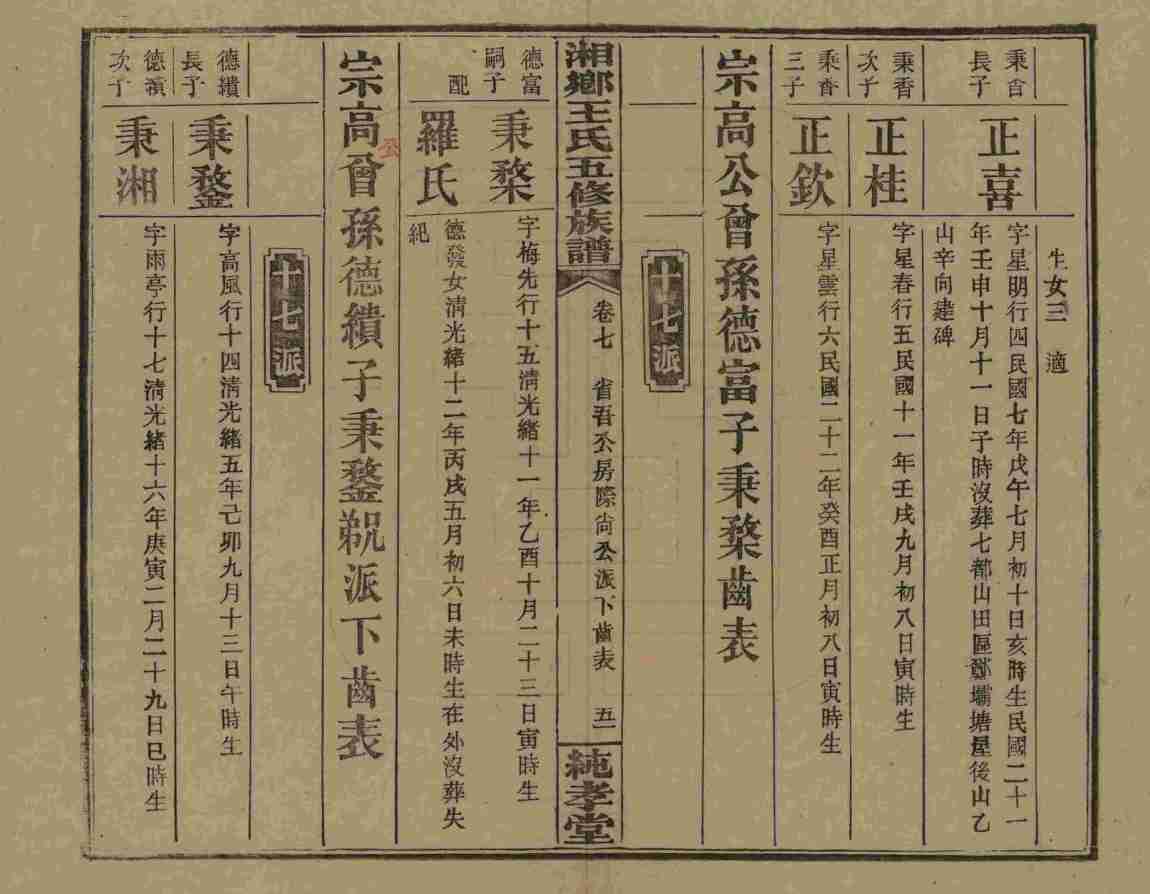 生女三　適
秉香長子
正喜
字星明行四民國七年戊午七月初十日亥時生民國二十一
年壬申十月十一日子時沒葬七都山田區鄭壩塘屋後山乙
山辛向建碑
秉香次子
正桂
字星春行五民國十一年壬戌九月初八日寅時生
秉香三子
正欽
字星雲行六民國二十二年癸酉正月初八日寅時生
宗高公曾孫德富子秉楘齒表
十七派
湘鄉王氏五修族譜
卷七　省吾公房際尚公派下齒表　五一
純孝堂
德富嗣子
秉楘
字梅先行十五清光緒十一年乙酉十月二十三日寅時生
配
羅氏
德發女清光緒十二年丙戌五月初六日未時生在外沒葬失
紀
宗高公曾孫德續子秉鍪派下齒表
十七派
德續長子
秉鍪
字高風行十四清光緒五年己卯九月十三日午時生
德續次子
秉湘
字雨亭行十七清光緒十六年庚寅二月二十九日巳時生